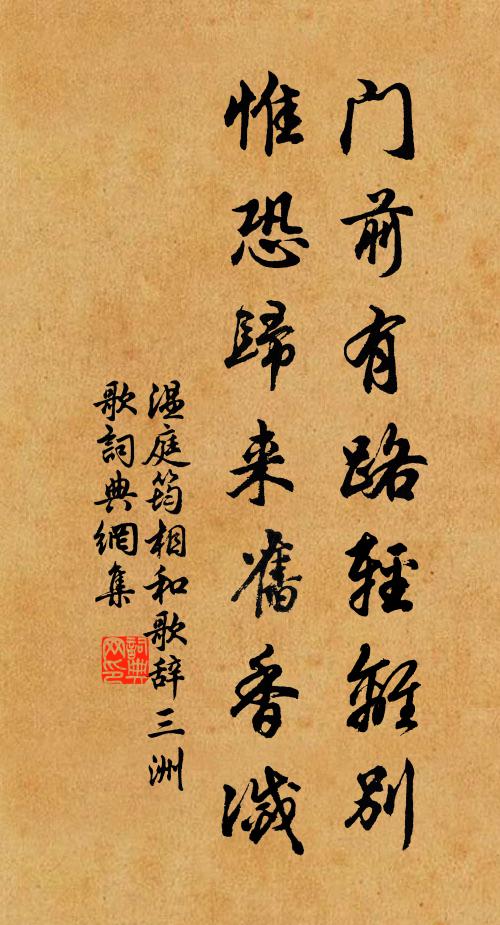 门前有路輕離别
惟恐歸来舊香滅
温庭筠相和歌辞三洲
歌詞典網集
詞典网印